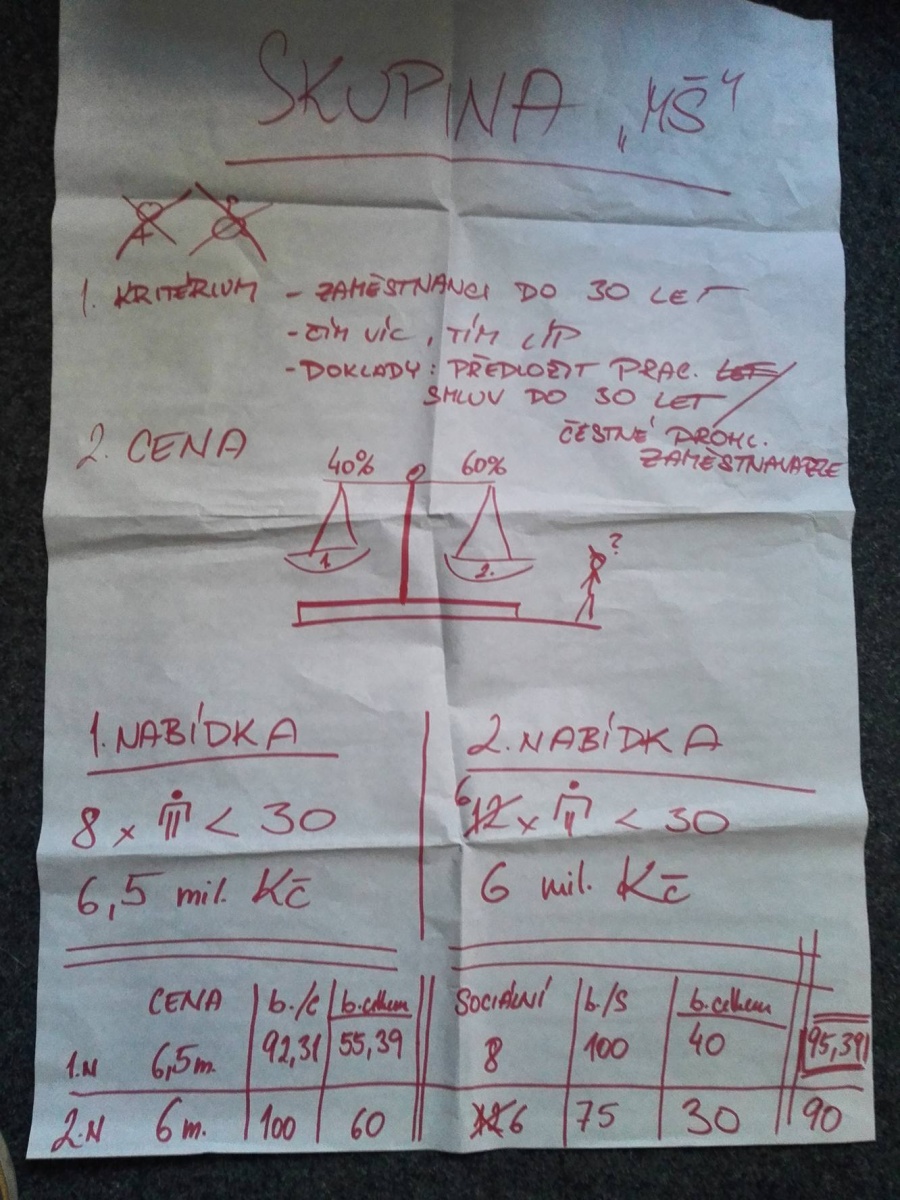 SKUPINA „MŠ"
1. KRITÉRIUM - ZAMĚSTNANCI DO 30 LET
- ČÍM VÍC, TÍM LÍP
- DOKLADY: PŘEDLOŽIT PRAC. LET
SMLUV DO 30 LET
ČESTNÉ PROHL.
ZAMĚSTNAVATELE
2. CENA
40% 60%
1. 2.
?
1. NABÍDKA
8 x < 30
6,5 mil. Kč
2. NABÍDKA
6 12 x < 30
6 mil. Kč
CENA b./C b.celkem SOCIÁLNÍ b./S b.celkem
1.N 6,5m. 92,31 55,39 8 100 40 95,39
2.N 6m. 100 60 12 6 75 30 90